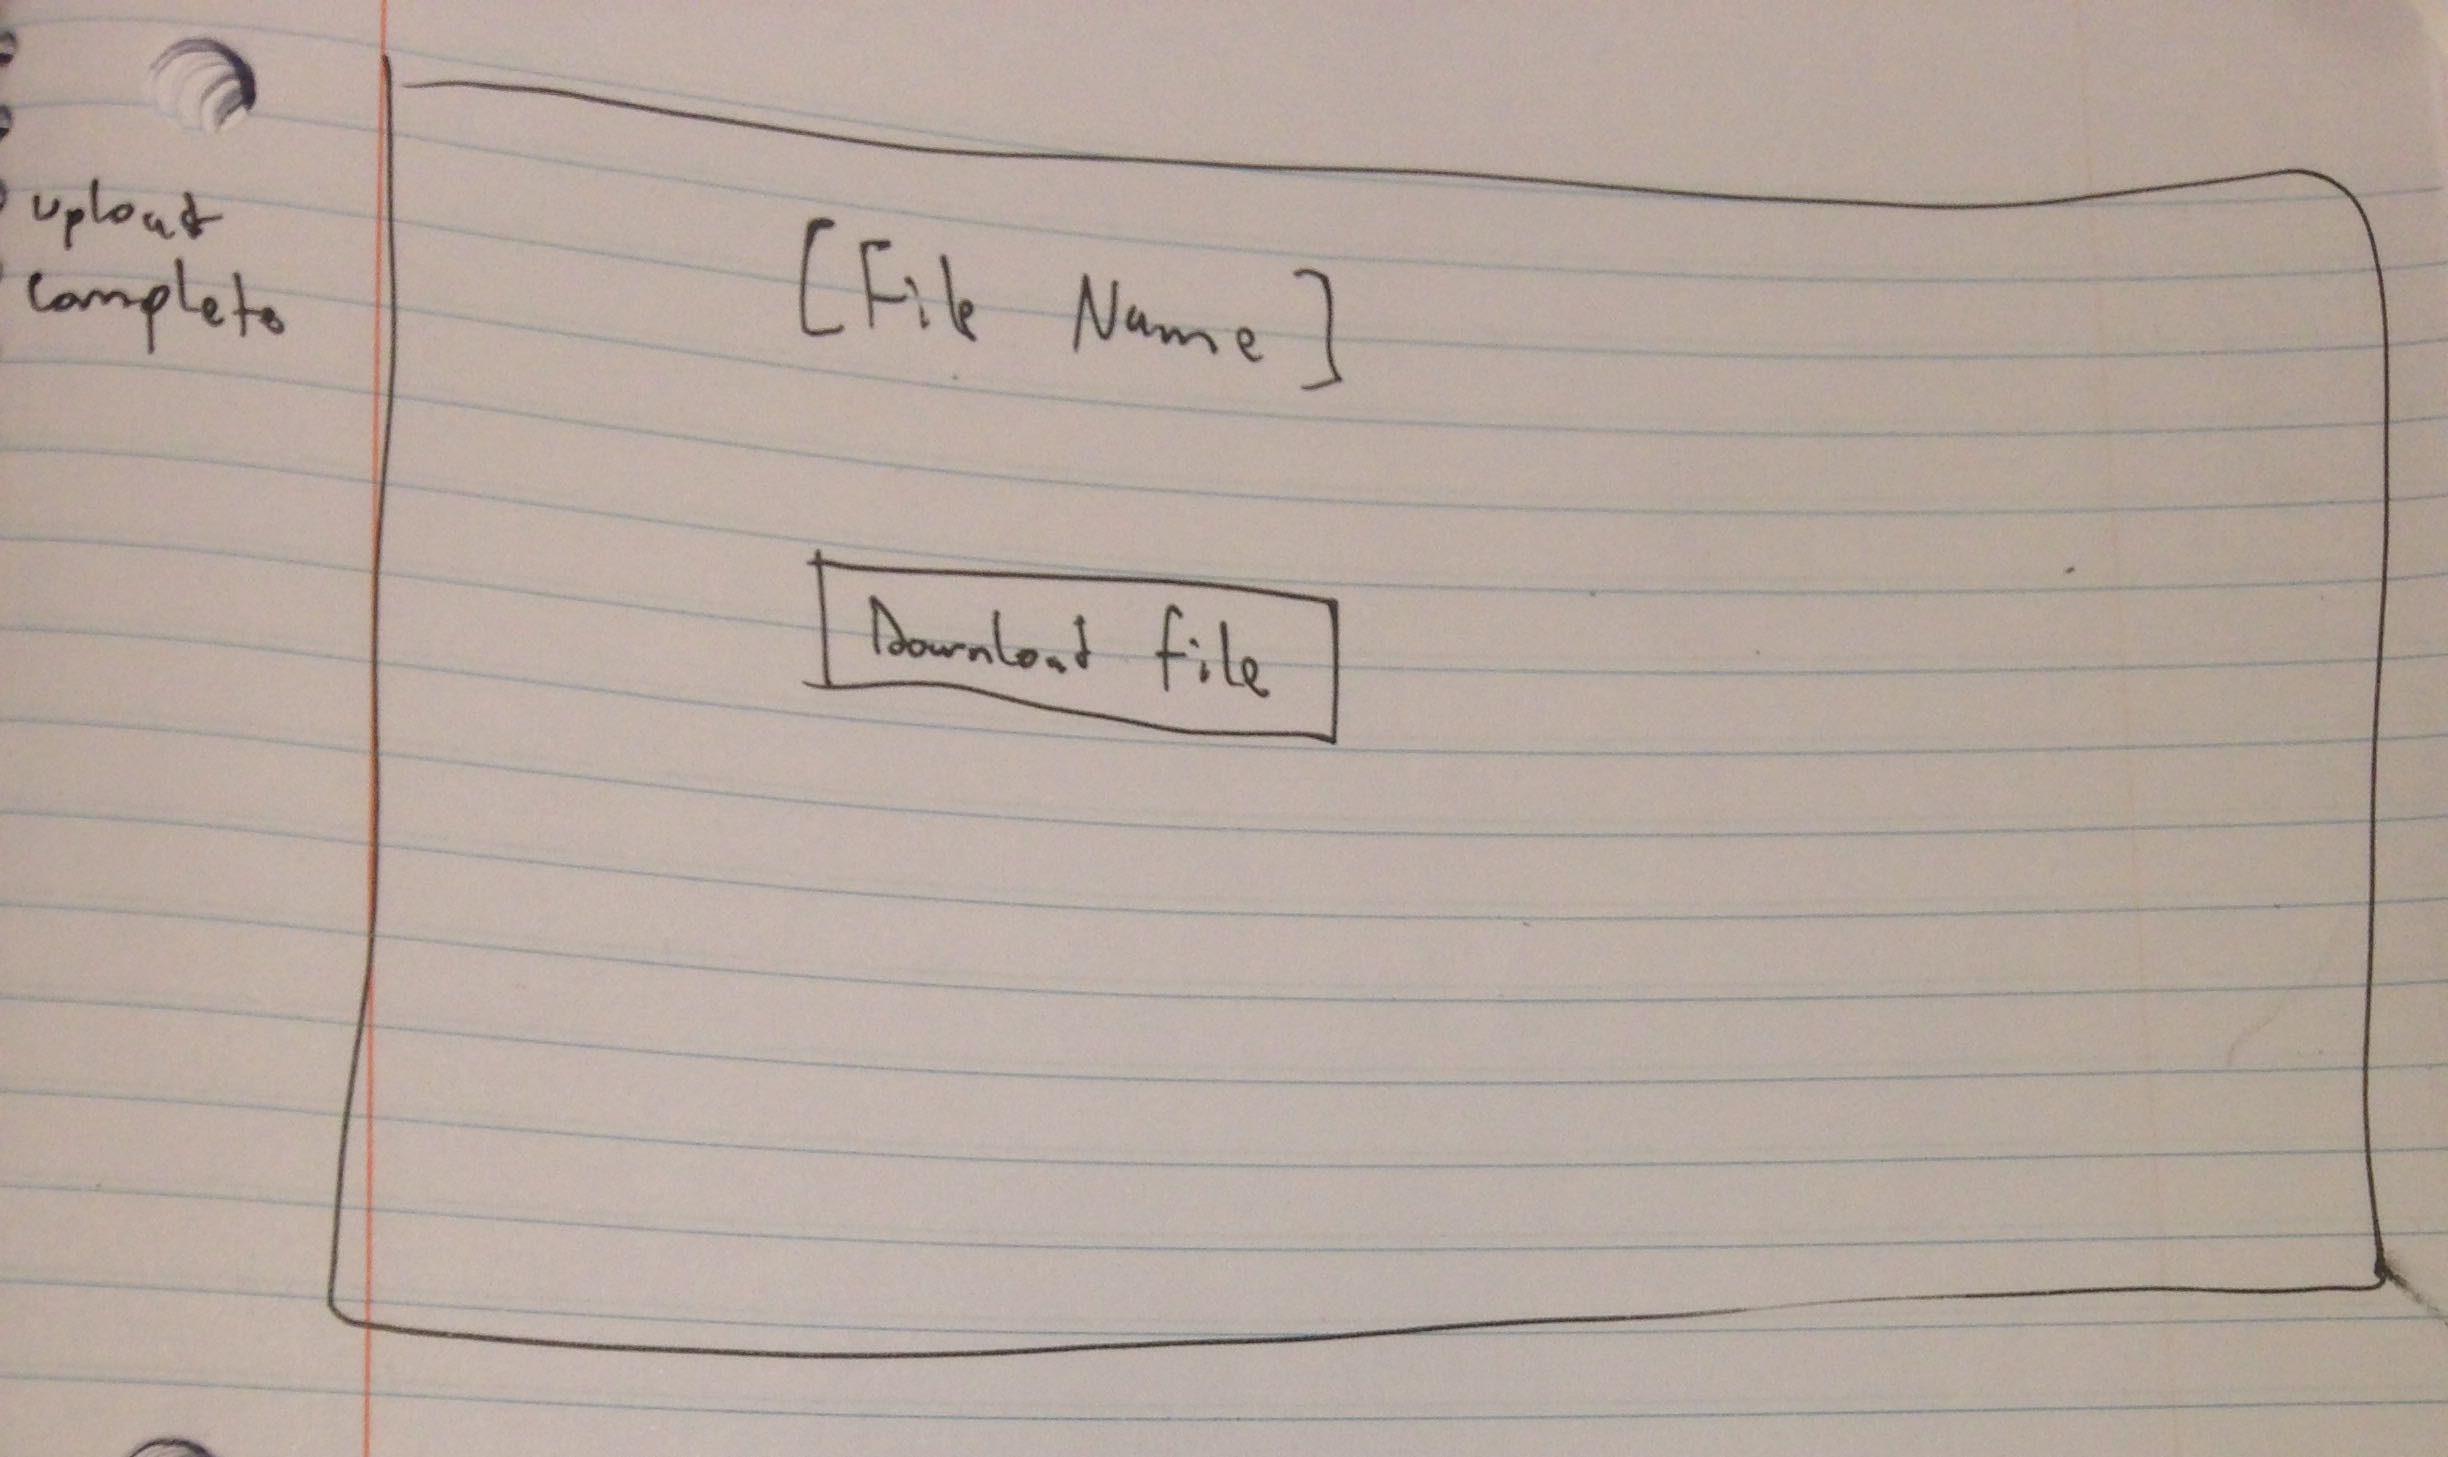 upload
complete
[File Name]
Download file